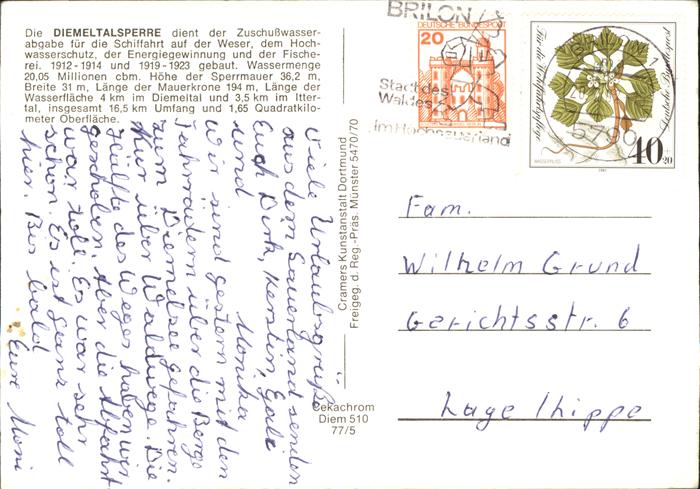 Die DIEMELTALSPERRE dient der Zuschußwasser-
abgabe für die Schiffahrt auf der Weser, dem Hoch-
wasserschutz, der Energiegewinnung und der Fische-
rei. 1912-1914 und 1919-1923 gebaut. Wassermenge
20,05 Millionen cbm. Höhe der Sperrmauer 36,2 m,
Breite 31 m, Länge der Mauerkrone 194 m, Länge der
Wasserfläche 4 km im Diemeltal und 3,5 km im Itter-
tal, insgesamt 16,5 km Umfang und 1,65 Quadratkilo-
meter Oberfläche.
Viele Urlaubsgrüße
aus dem Sauerland senden
Euch Dirk, Kerstin,
und Monika
Wir sind gestern mit den
Fahrrädern über die Berge
zum Diemelsee gefahren.
Nur über Waldwege. Die
Hälfte des Weges haben wir
geschoben. Aber die Abfahrt
war toll. Es war sehr
schön. Es ist ganz toll
hier. Bis bald
Eure Moni
Cramers Kunstanstalt Dortmund
Freigeg. d. Reg.-Präs. Münster 5470/70
Cekachrom
Diem 510
77/5
BRILON
Stadt des
Waldes
im Hochsauerland
DEUTSCHE BUNDESPOST
20
Für die Wohlfahrtspflege
Deutsche Bundespost
5790
WASSERNUSS
1981
40+20
Fam.
Wilhelm Grund
Gerichtsstr. 6
Lage / Lippe